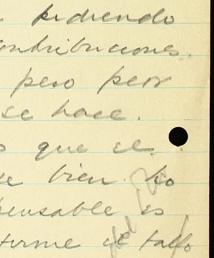 pidiendo
ontribuciones.
peso peor
se hace.
s que se
se bien. Lo
pensable es
forme el